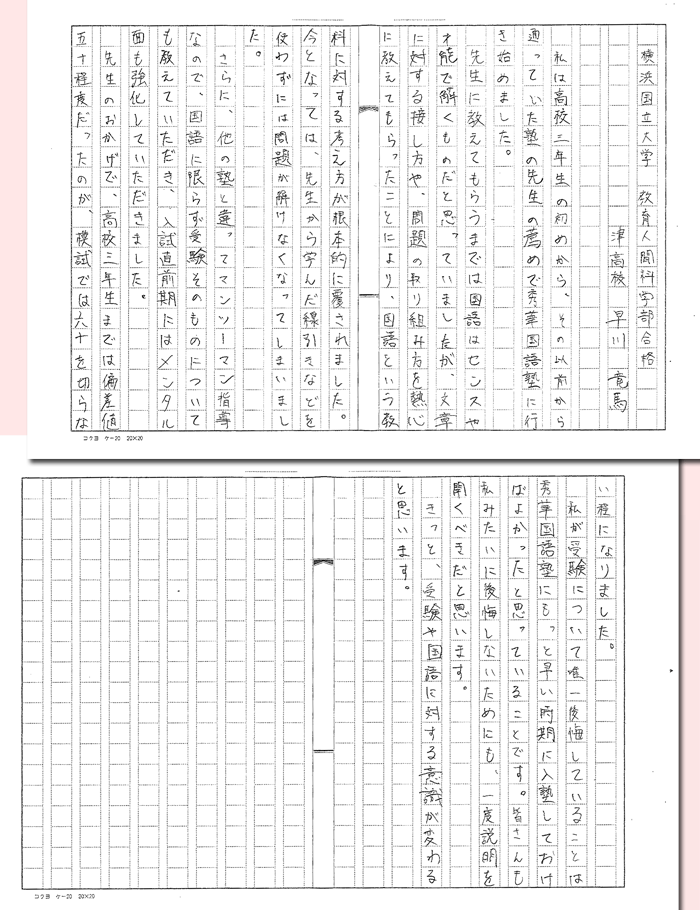 横浜国立大学　教育人間科学部合格
津高校　早川　竜馬
　私は高校三年生の初めから、その以前から
通っていた塾の先生の薦めで秀華国語塾に行
き始めました。
　先生に教えてもらうまでは国語はセンスや
才能で解くものだと思っていましたが、文章
に対する接し方や、問題の取り組み方を熱心
に教えてもらったことにより、国語という教
料に対する考え方が根本的に覆されました。
今となっては、先生から学んだ線引きなどを
使わずには問題が解けなくなってしまいまし
た。
　さらに、他の塾と違ってマンツーマン指導
なので、国語に限らず受験そのものについて
も教えていただき、入試直前期にはメンタル
面も強化していただきました。
　先生のおかげで、高校三年生までは偏差値
五十程度だったのが、模試では六十を切らな
コクヨ　ケー20　20×20
い程になりました。
　私が受験について唯一後悔していることは
秀華国語塾にもっと早い時期に入塾しておけ
ばよかったと思っていることです。皆さんも
私みたいに後悔しないためにも、一度説明を
聞くべきだと思います。
　きっと、受験や国語に対する意識が変わる
と思います。
コクヨ　ケー20　20×20